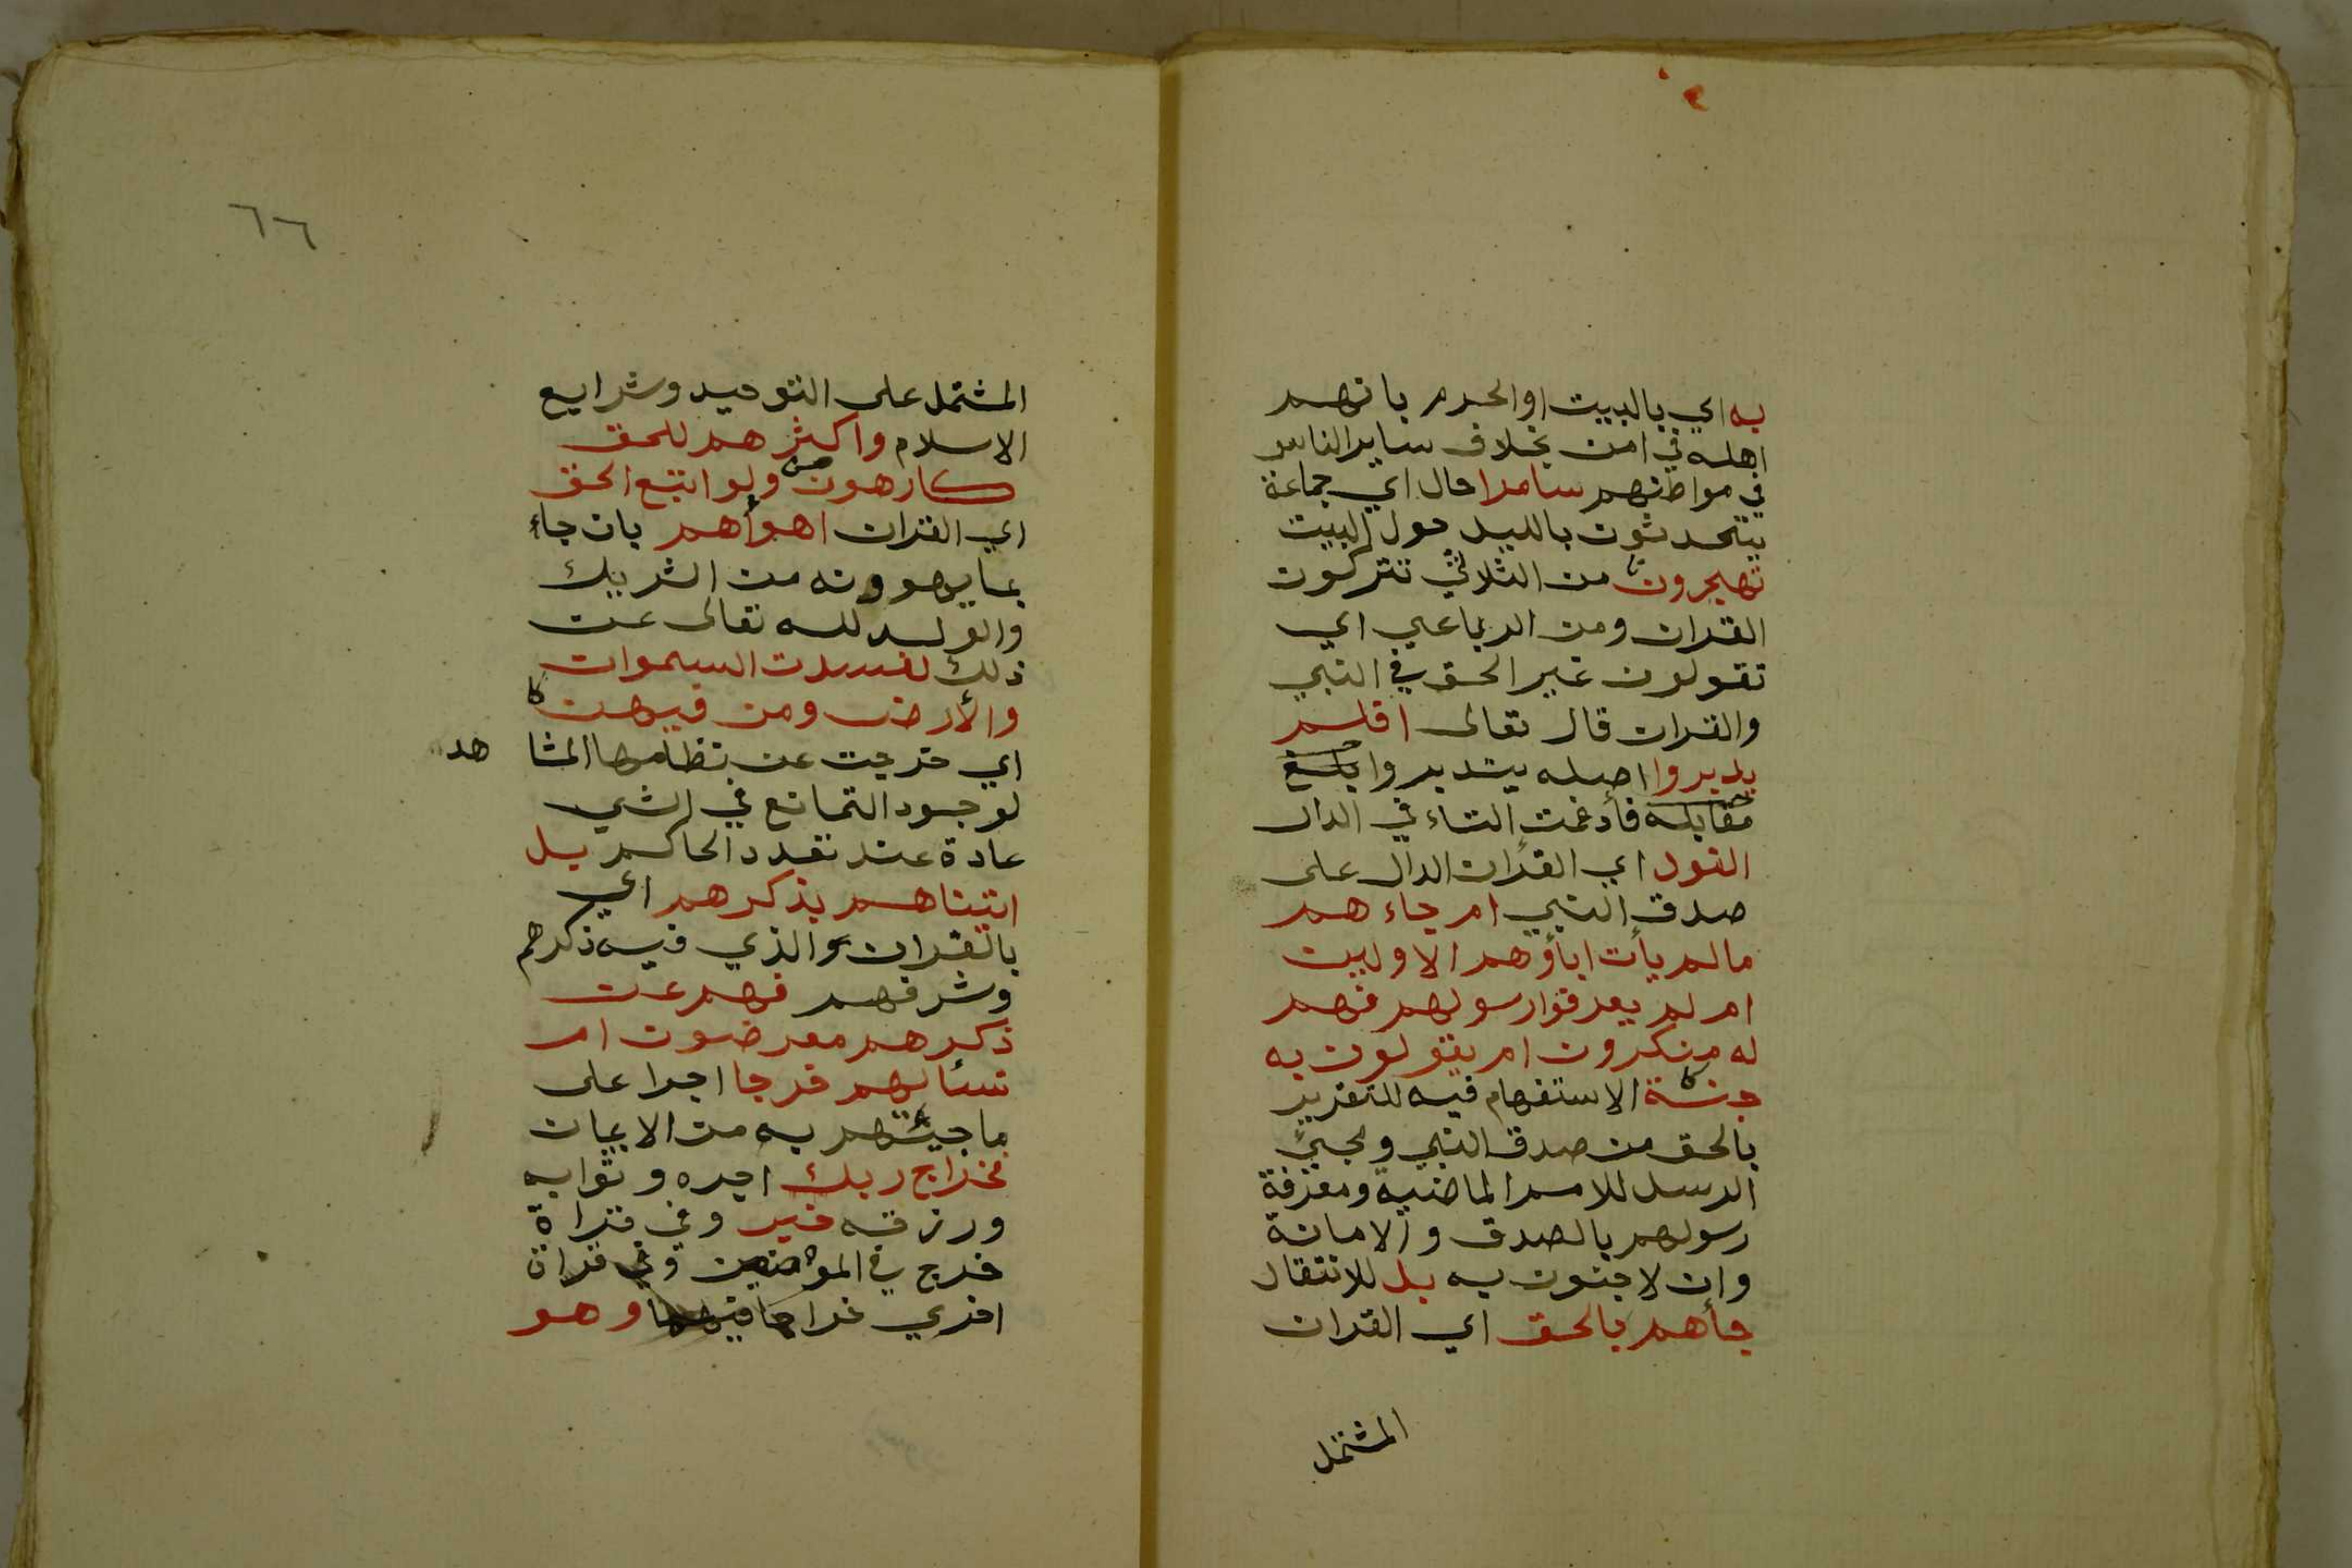 به اي بالبيت او الحرم بانهم
اهله في امن بخلاف ساير الناس
في مواطنهم سامرا حال اي جماعة
يتحدثون بالليل حول البيت
تهجرون من الثلاثي تتركون
القران ومن الرباعي اي
تقولون غير الحق في النبي
والقران قال تعالى افلم
يدبروا اصله يتدبروا بلغ
مقابلة فأدغمت التاء في الدال
القول اي القرءان الدال على
صدق النبي ام جاءهم
مالم يأت اباؤهم الاولين
ام لم يعرفوا رسولهم فهم
له منكرون ام يقولون به
جنة الاستفهام فيه للتقرير
بالحق من صدق النبي ومجيئ
الرسل للامم الماضية ومعرفة
رسولهم بالصدق والامانة
وان لا جنون به بل للانتقال
جأهم بالحق اي القران
المشتمل
٦٦
المشتمل على التوحيد وشرايع
الاسلام واكثرهم للحق
كارهون ولو اتبع الحق
اي القران اهوأهم بان جاء
بما يهوونه من الشريك
والولد لله تعالى عن
ذلك لفسدت السموات
والأرض ومن فيهن
اي خرجت عن نظامها المشا هد
لوجود التمانع في الشي
عادة عند تعدد الحاكم بل
اتيناهم بذكرهم اي
بالقران والذي فيه ذكرهم
وشرفهم فهم عن
ذكرهم معرضون ام
تسئالهم خرجا اجرا على
ما جيئتهم به من الايمان
فخراج ربك اجره وثوابه
ورزقه خير وفي قراة
خرج في الموضعين وفي قراة
اخري خراجا فيهما وهو